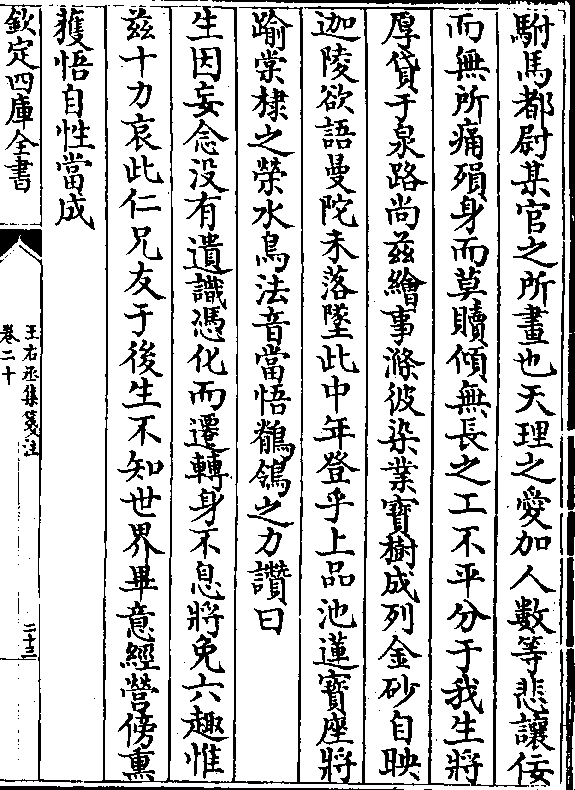 駙馬都尉某官之所畫也天理之愛加人數等悲讓佞
而無所痛殞身而莫贖傾無長之工不平分于我生將
厚貸于泉路尚兹繪事滌彼染業寳樹成列金砂自映
迦陵欲語曼陀未落墜此中年登乎上品池蓮寳座將
踰棠棣之榮水鳥法音當悟鶺鴒之力讚曰
生因妄念没有遺識憑化而遷轉身不息將免六趣惟
兹十力哀此仁兄友于後生不知世界畢意經營傍熏
獲悟自性當成
欽定四庫全書
王右丞集箋注
卷二十
二十三